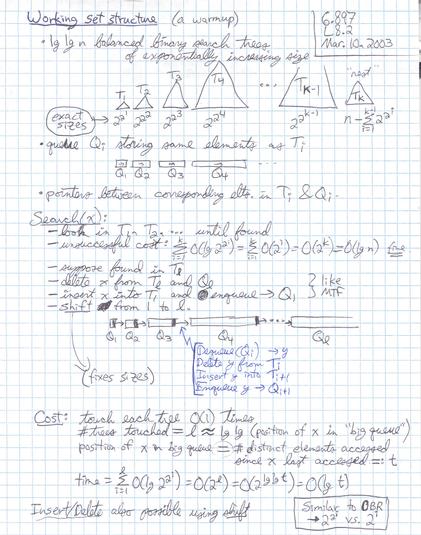 Working set structure (a warmup)
6.897
L8.2
Mar. 10, 2003
• lg lg n balanced binary search trees
of exponentially increasing size
T₁ T₂ T₃ T₄ ... Tₖ₋₁ "rest" Tₖ
exact sizes → 2^2^1 2^2^2 2^2^3 2^2^4 2^2^(k-1) n - Σ_{i=1}^{k-1} 2^2^i
• queue Qᵢ storing same elements as Tᵢ
Q₁ Q₂ Q₃ Q₄ ...
• pointers between corresponding elts. in Tᵢ & Qᵢ.
Search(x):
- look in T₁, T₂, ... until found
- unsuccessful cost: Σ_{i=1}^{k} O(lg 2^2^i) = Σ_{i=1}^{k} O(2^i) = O(2^k) = O(lg n) fine
- suppose found in Tₗ
- delete x from Tₗ and Qₗ
- insert x into T₁ and enqueue → Q₁ } like MTF
- shift from 1 to l.
Q₁ Q₂ Q₃ Q₄ Qₗ
(fixes sizes)
Dequeue(Qᵢ) → y
Delete y from Tᵢ
Insert y into Tᵢ₊₁
Enqueue y → Qᵢ₊₁
Cost: touch each tree O(1) times
# trees touched = l ≈ lg lg (position of x in "big queue")
position of x in big queue = # distinct elements accessed
since x last accessed =: t
time = Σ_{i=1}^{l} O(lg 2^2^i) = O(2^l) = O(2^(lg lg t)) = O(lg t)
Insert/Delete also possible using shift
Similar to OBR
→ 2^2^i vs. 2^i